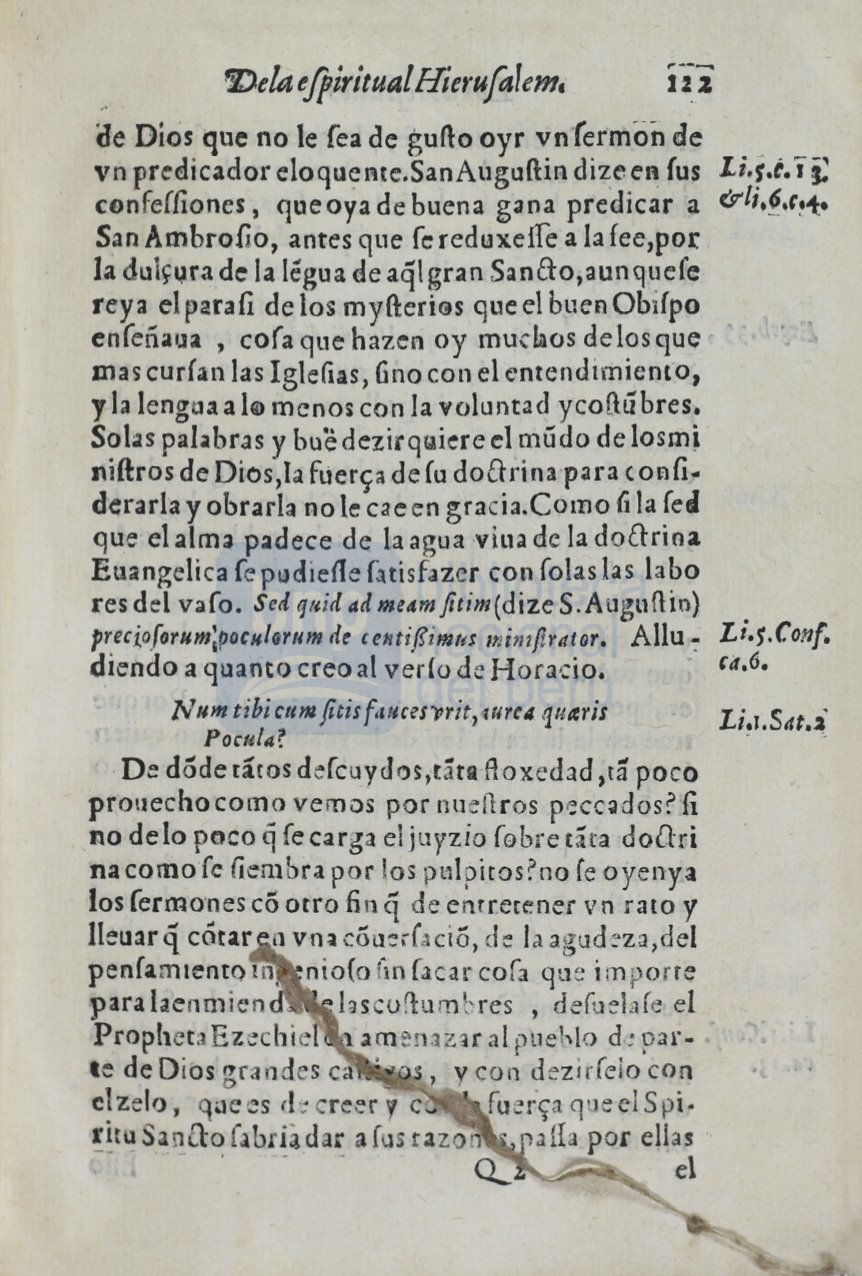 De la eſpiritual Hieruſalem. 122
de Dios que no le ſea de guſto oyr vn ſermon de
vn predicador eloquente. San Auguſtin dize en ſus
Li.5.c.13.
confeſſiones, que oya de buena gana predicar a
&li.6.c.4.
San Ambroſio, antes que ſe reduxeſſe a la fee, por
la dulçura de la lẽgua de aq̃l gran Sancto, aunque ſe
reya el para ſi de los myſterios que el buen Obiſpo
enſeñaua , coſa que hazen oy muchos de los que
mas curſan las Igleſias, ſino con el entendimiento,
y la lengua a lo menos con la voluntad y coſtũbres.
Solas palabras y buẽ dezir quiere el mũdo de los mi
niſtros de Dios, la fuerça de ſu doctrina para conſi-
derarla y obrarla no le cae en gracia. Como ſi la ſed
que el alma padece de la agua viua de la doctrina
Euangelica ſe pudieſſe ſatisfazer con ſolas las labo
res del vaſo. Sed quid ad meam ſitim (dize S. Auguſtin)
precioſorum poculorum decentißimus miniſtrator. Allu-
Li.5.Conf.
diendo a quanto creo al verſo de Horacio.
ca.6.
Num tibi cum ſitis fauces vrit, aurea quæris
Li.1.Sat.2
Pocula?
De dõde tãtos deſcuydos, tãta floxedad, tã poco
prouecho como vemos por nueſtros peccados? ſi
no de lo poco q̃ ſe carga el juyzio ſobre tãta doctri
na como ſe ſiembra por los pulpitos? no ſe oyen ya
los ſermones cõ otro fin q̃ de entretener vn rato y
lleuar q̃ cõtar en vna cõuerſaciõ, de la agudeza, del
penſamiento ingenioſo ſin ſacar coſa que importe
para la enmienda de las coſtumbres , deſuelaſe el
Propheta Ezechiel en amenazar al pueblo de par-
te de Dios grandes caſtigos, y con dezirſelo con
el zelo, que es de creer y con la fuerça que el Spi-
ritu Sancto ſabria dar a ſus razones, paſſa por ellas
Q 2 el